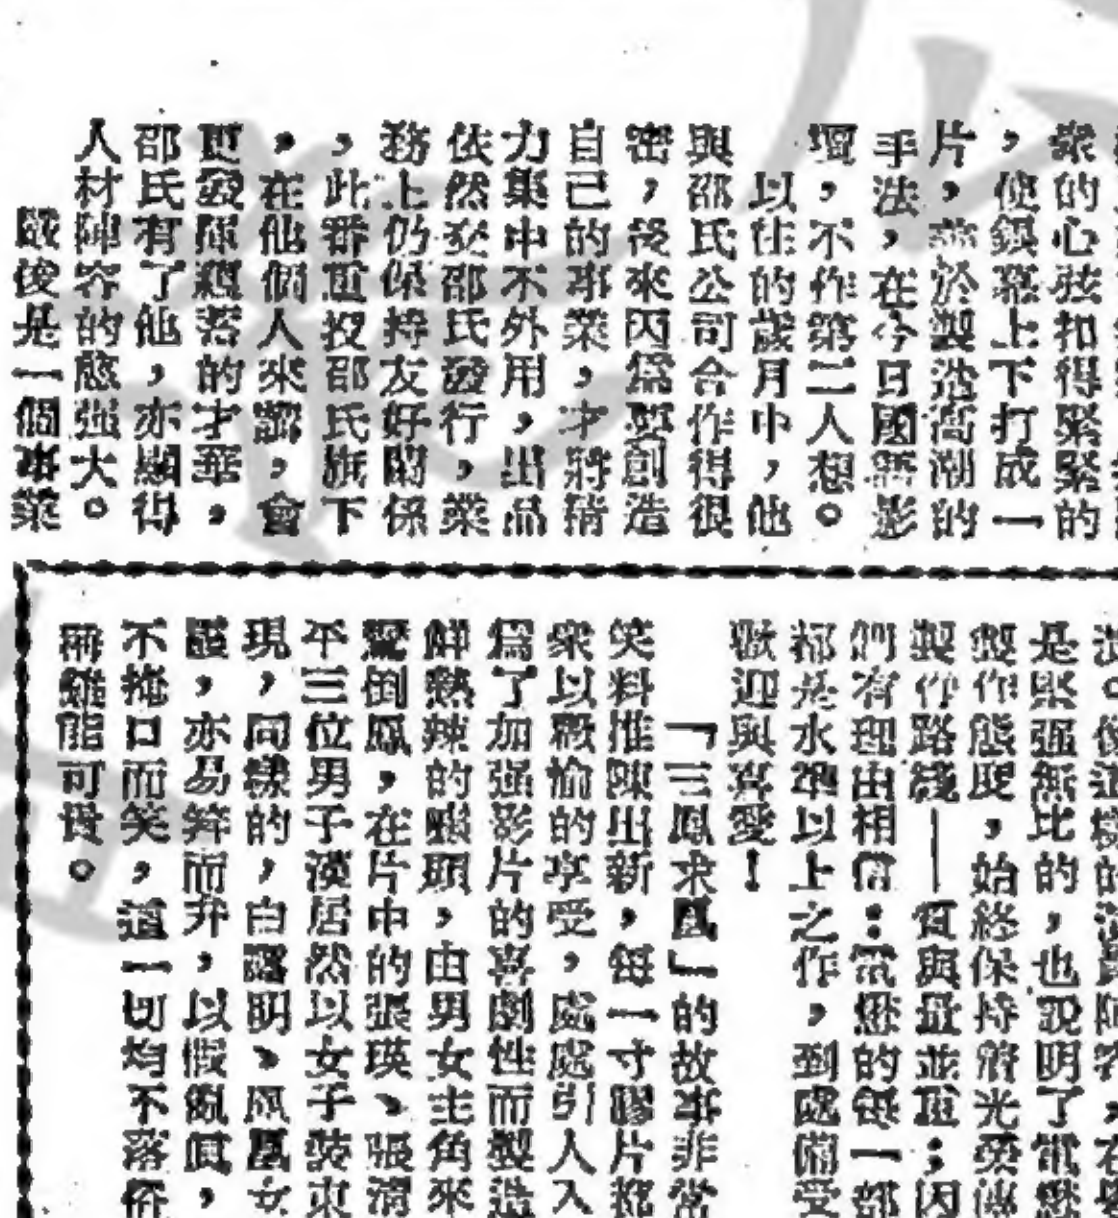 衆的心弦扣得緊緊的
，使銀幕上下打成一
片，於製造高潮的
手法，在今日國影
壇，不作第二人想。
以往的歲月中，他
與邵氏公司合作得很
密，後來因爲要創造
自己的事業，才將精
力集中不外用，出品
依然交邵氏發行，業
務上仍保持友好關係
，此番重投邵氏旗下
，在他個人來說，會
更發揮的才華，
邵氏有了他，亦顯得
人材陣容的強大。
嚴俊是一個事業
是堅强無比的，也說明了電懋
製作態度，始終保持着光榮傳
製作路綫——質與量並重；因
們有理由相信：電懋的每一部
都是水準以上之作，到處備受
歡迎與喜愛！
「三鳳求凰」的故事非常
笑料推陳出新，每一寸膠片都
衆以歡愉的享受，處處引人入
爲了加强影片的喜劇性而製造
鮮熱辣的噱頭，由男女主角來
驚倒鳳，在片中的張瑛、張清
平三位男子漢居然以女子裝束
現，同樣的，白露明、鳳凰女
，亦易笄而弁，以假亂眞，
不掩口而笑，這一切均不落俗
雖能可貴。